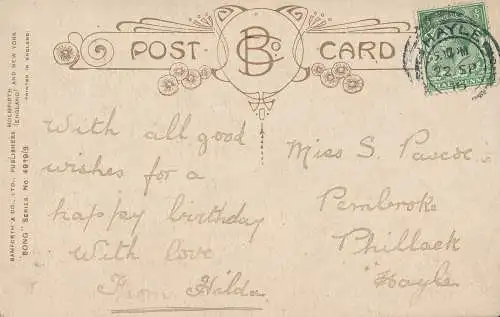 POST CARD
B Co.
HAYLE
22 SP
10
BAMFORTH & CO., LTD., PUBLISHERS HOLMFIRTH (ENGLAND) AND NEW YORK
"BONG" SERIES. NO. 4919/3.
PRINTED IN ENGLAND.
With all good
wishes for a
happy birthday
With love
From Hilda
Miss S. Pascoe
Pembroke
Phillack
Hayle